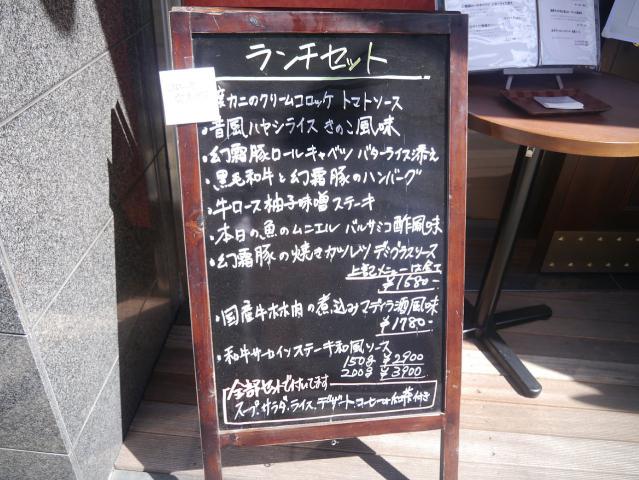 ランチセット
カニのクリームコロッケ トマトソース
・昔風ハヤシライス きのこ風味
・幻霜豚ロールキャベツ バターライス添え
・黒毛和牛と幻霜豚のハンバーグ
・牛ロース柚子味噌ステーキ
・本日の魚のムニエル バルサミコ酢風味
・幻霜豚の焼きカツレツ デミグラスソース
上記メニューは全て
¥1580-
・国産牛ホホ肉の煮込みマデイラ酒風味
¥1780-
・和牛サーロインステーキ和風ソース
150g ¥2900
200g ¥3900
全部セットで付いてます
スープ、サラダ、ライス、デザート、コーヒーor紅茶付き